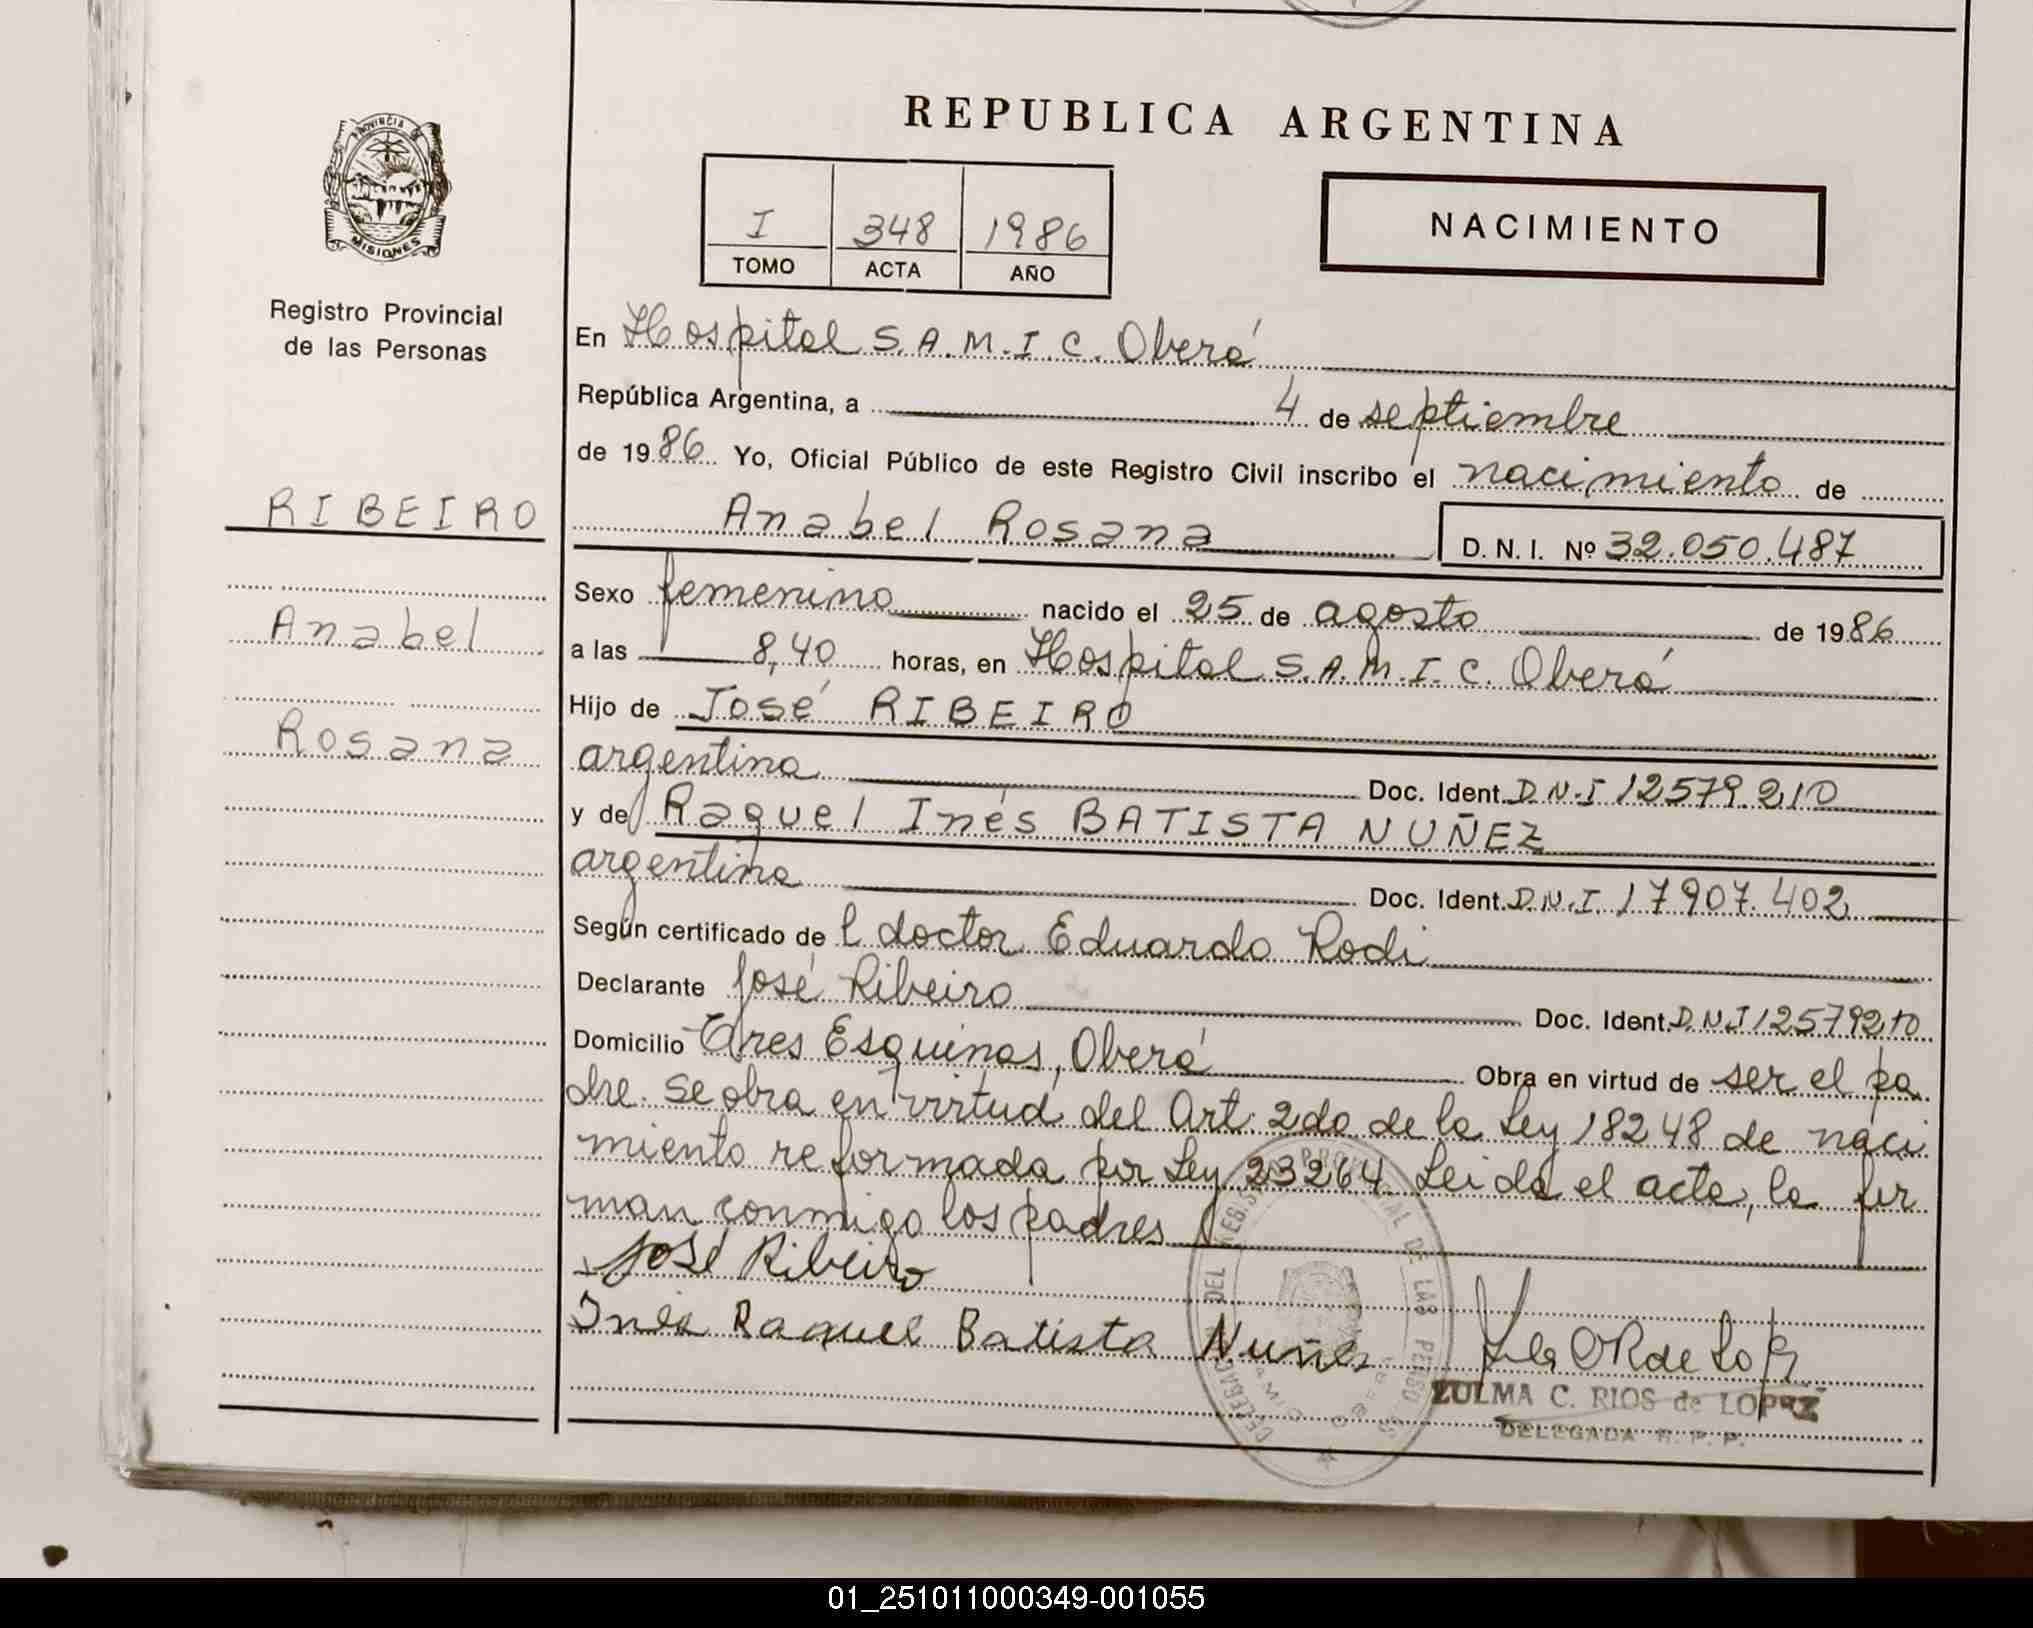 REPUBLICA ARGENTINA
PROVINCIA DE
MISIONES
Registro Provincial
de las Personas
I 348 1986
TOMO ACTA AÑO
NACIMIENTO
En Hospital S.A.M.I.C. Oberá
República Argentina, a 4 de septiembre
de 1986 Yo, Oficial Público de este Registro Civil inscribo el nacimiento de
RIBEIRO
Anabel
Rosana
Anabel Rosana D.N.I. Nº 32.050.487
Sexo femenino nacido el 25 de agosto de 1986
a las 8,40 horas, en Hospital S.A.M.I.C. Oberá
Hijo de José RIBEIRO
argentina Doc. Ident. D.N.I 12579.210
y de Raquel Inés BATISTA NUÑEZ
argentina Doc. Ident. D.N.I. 17907.402
Según certificado de l doctor Eduardo Rodi
Declarante José Ribeiro Doc. Ident. D.N.I 12579210
Domicilio Tres Esquinas, Oberá Obra en virtud de ser el pa
dre. Se obra en virtud del Art. 2do de la Ley 18248 de naci
miento reformada por Ley 23264 Leida el acta, la fir
man conmigo los padres
José Ribeiro
Inés Raquel Batista Nuñes
ZULMA C. RIOS de LOPEZ
DELEGADA R. P. P.
01_251011000349-001055